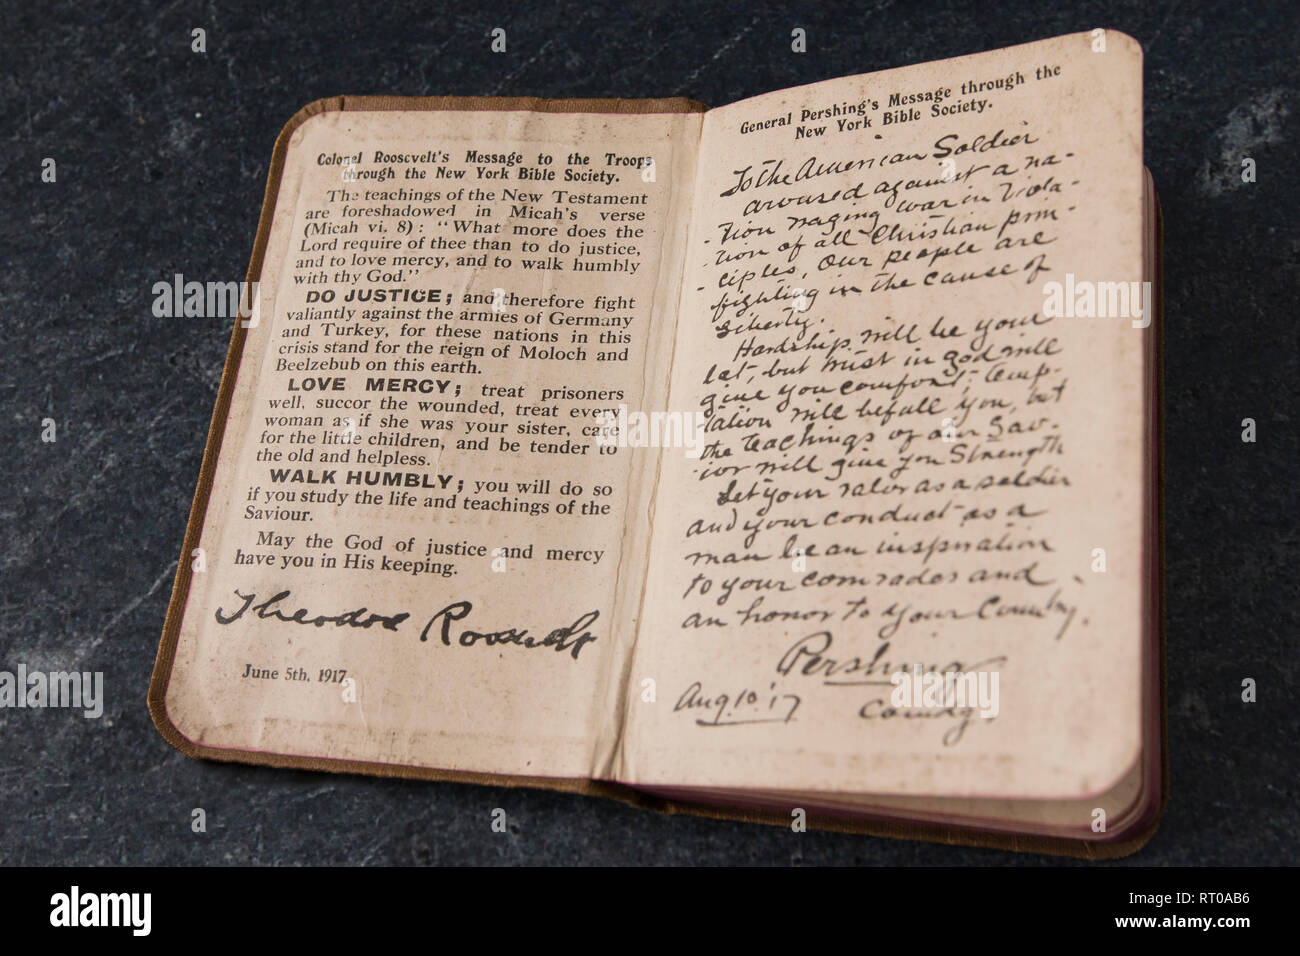 Colonel Roosevelt's Message to the Troops
through the New York Bible Society.
The teachings of the New Testament
are foreshadowed in Micah's verse
(Micah vi. 8): "What more does the
Lord require of thee than to do justice,
and to love mercy, and to walk humbly
with thy God."
DO JUSTICE; and therefore fight
valiantly against the armies of Germany
and Turkey, for these nations in this
crisis stand for the reign of Moloch and
Beelzebub on this earth.
LOVE MERCY; treat prisoners
well, succor the wounded, treat every
woman as if she was your sister, care
for the little children, and be tender to
the old and helpless.
WALK HUMBLY; you will do so
if you study the life and teachings of the
Saviour.
May the God of justice and mercy
have you in His keeping.
Theodore Roosevelt
June 5th, 1917
General Pershing's Message through the
New York Bible Society.
To the American Soldier
aroused against a na-
-tion waging war in viola-
-tion of all Christian prin-
-ciples, our people are
fighting in the cause of
liberty.
Hardship will be your
lot, but trust in God will
give you comfort; temp-
tation will befall you, but
the teachings of our Sav-
-ior will give you strength
Let your valor as a soldier
and your conduct as a
man be an inspiration
to your comrades and
an honor to your Country.
Pershing
Aug. 10. '17 Comdg.
alamy
alamy
alamy
Image ID: RT0AB6
www.alamy.com